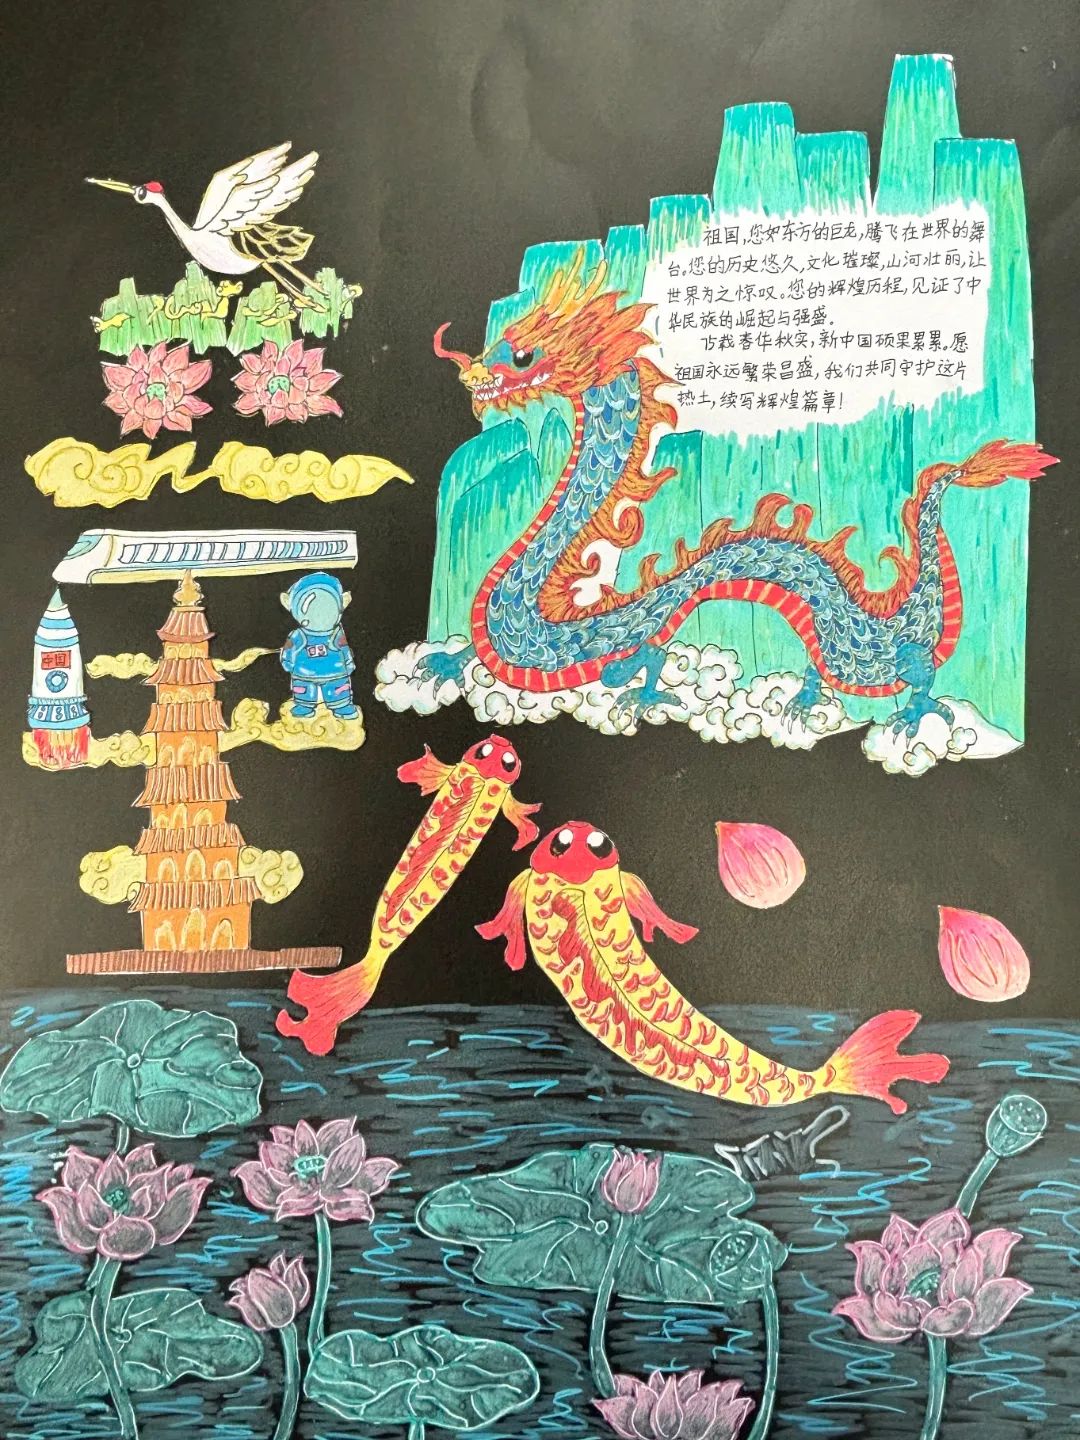 祖国,您如东方的巨龙,腾飞在世界的舞
台。您的历史悠久,文化璀璨,山河壮丽,让
世界为之惊叹。您的辉煌历程,见证了中
华民族的崛起与强盛。
75载春华秋实,新中国硕果累累。愿
祖国永远繁荣昌盛,我们共同守护这片
热土,续写辉煌篇章!
中国